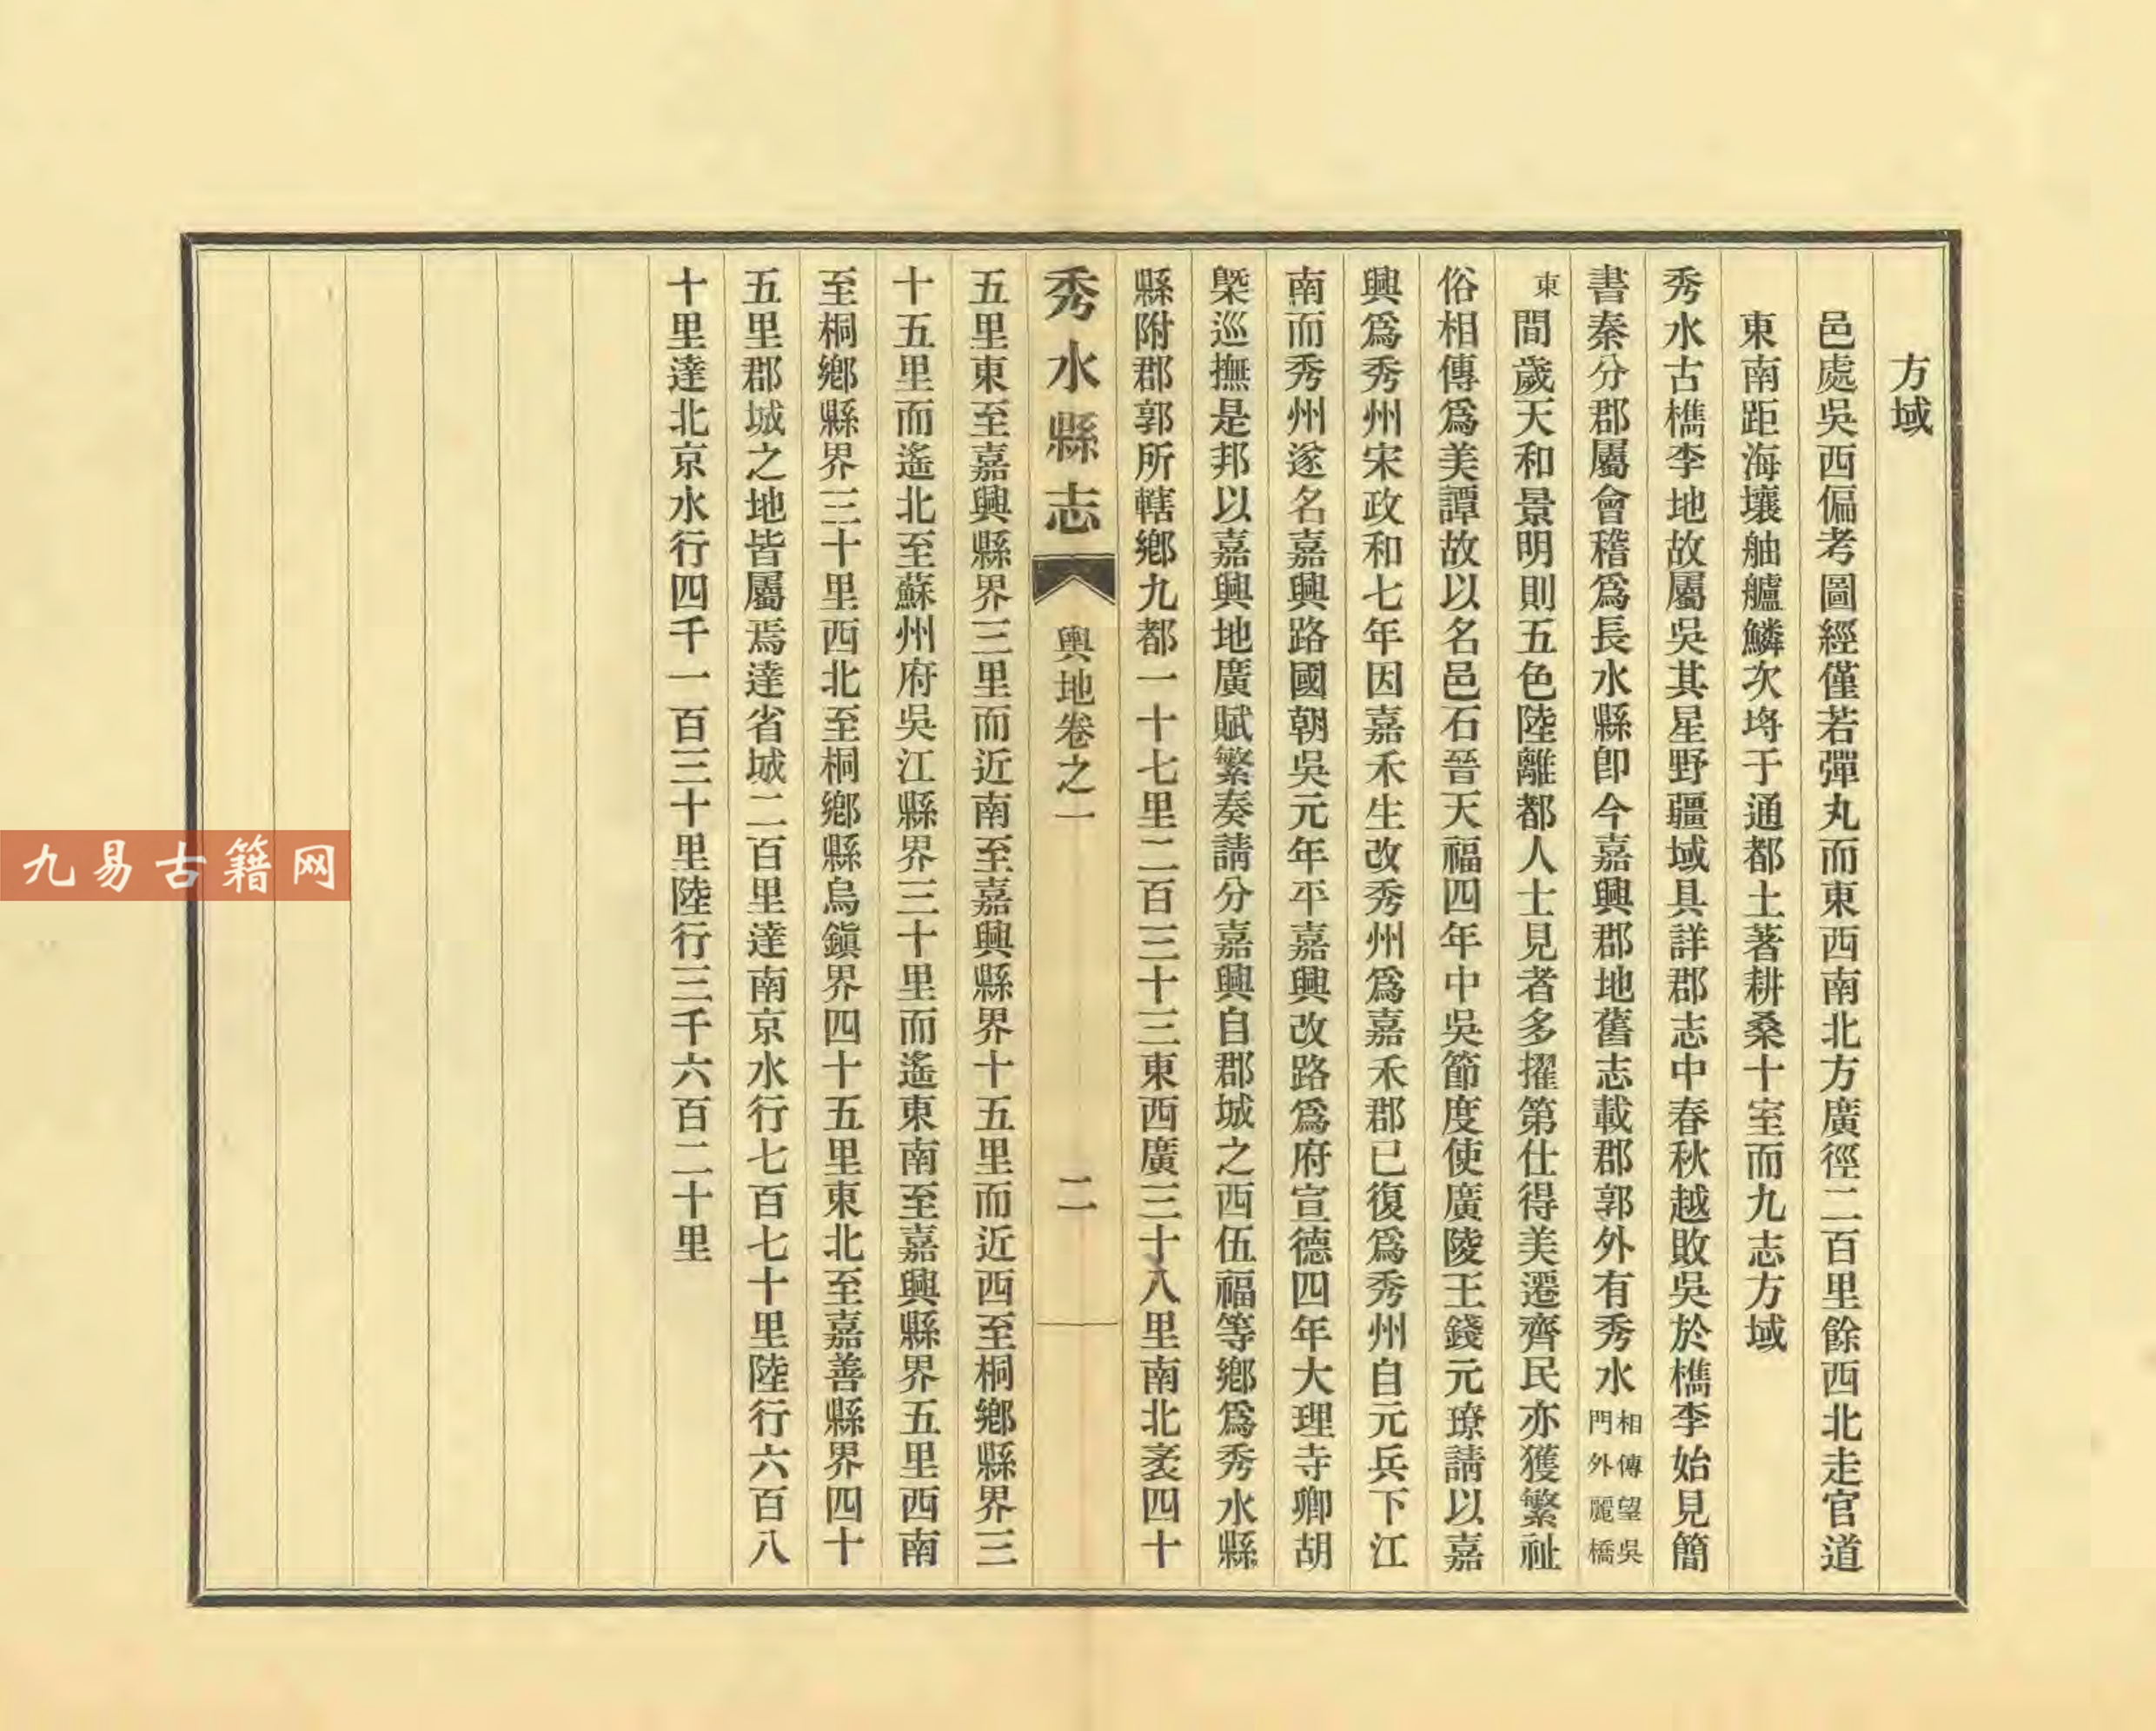 方域
邑處吳西偏考圖經僅若彈丸而東西南北方廣徑二百里餘西北走官道
東南距海壤舳艫鱗次埒于通都土著耕桑十室而九志方域
秀水古檇李地故屬吳其星野疆域具詳郡志中春秋越敗吳於檇李始見簡
書秦分郡屬會稽爲長水縣卽今嘉興郡地舊志載郡郭外有秀水相傳望吳門外麗橋
東間歲天和景明則五色陸離都人士見者多擢第仕得美遷齊民亦獲繁祉
俗相傳爲美譚故以名邑石晉天福四年中吳節度使廣陵王錢元璙請以嘉
興爲秀州宋政和七年因嘉禾生改秀州爲嘉禾郡已復爲秀州自元兵下江
南而秀州遂名嘉興路國朝吳元年平嘉興改路爲府宣德四年大理寺卿胡
槩巡撫是邦以嘉興地廣賦繁奏請分嘉興自郡城之西伍福等鄉爲秀水縣
縣附郡郭所轄鄉九都一十七里二百三十三東西廣三十八里南北袤四十
秀水縣志 輿地卷之一 二
五里東至嘉興縣界三里而近南至嘉興縣界十五里而近西至桐鄉縣界三
十五里而遙北至蘇州府吳江縣界三十里而遙東南至嘉興縣界五里西南
至桐鄉縣界三十里西北至桐鄉縣烏鎭界四十五里東北至嘉善縣界四十
五里郡城之地皆屬焉達省城二百里達南京水行七百七十里陸行六百八
十里達北京水行四千一百三十里陸行三千六百二十里
九易古籍网